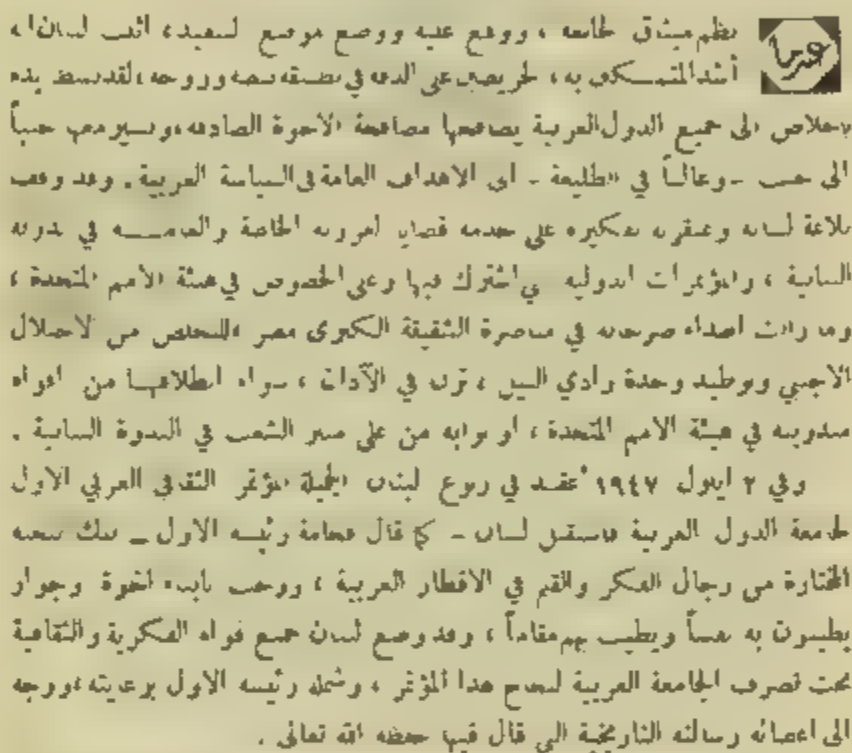 عندما نظم ميثاق الجامعة ، ووقع عليه ووضع موضع التنفيذ، اثبت لبنان انه
أشد المتمسكين به، الحريصين على الدقة في تطبيقه بنصه وروحه، لقد بسط يده
باخلاص الى جميع الدول العربية يصافحها مصافحة الاخوة الصادقة، ويسير معهم جنباً
الى جنب ـ وغالباً في الطليعة ـ الى الاهداف العامة في السياسة العربية . وقد وقف
بلاغة لسانه وعبقرية تفكيره على خدمة قضايا العروبة الخاصة والعامـــة في ندوته
النيابية ، والمؤتمرات الدولية التي اشترك فيها وعلى الخصوص في هيئة الامم المتحدة ،
وما زالت اصداء صرخاته في مناصرة الشقيقة الكبرى مصر للتخلص من الاحتلال
الاجنبي وتوطيد وحدة وادي النيل ، ترن في الآذان ، سواء انطلاقهـا من افواه
مندوبيه في هيئة الامم المتحدة ، او نوابه من على منبر الشعب في الندوة النيابية .
وفي ٢ ايلول ١٩٤٧ عقد في ربوع لبنان الجميلة المؤتمر الثقافي العربي الاول
لجامعة الدول العربية فاستقبل لبنان ـ كما قال فخامة رئيسه الاول ـ تلك النخبة
المختارة من رجال الفكر والقلم في الاقطار العربية ، ورحب بابناء اخوة وجوار
يطيبون به نفساً ويطيب بهم مقاماً ، وقد وضع لبنان جميع قواه الفكرية والثقافية
تحت تصرف الجامعة العربية لنجاح هذا المؤتمر ، وشمله رئيسه الاول برعايته، ووجه
الى اعضائه رسالته التاريخية التي قال فيها حفظه الله تعالى .